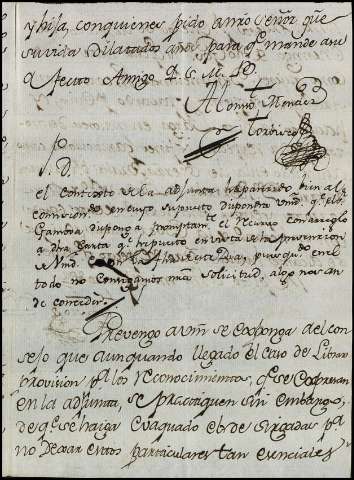 y hija, con quienes pido a nro Señor gue
su vida dilattados años para q.e mande a su
afecto Amigo Q. S. M. B.
Alonso Mendez
P. D.
el contexto de la adjunta ha parecido bien al
en cuyo supuesto dispondra Vmd. q.e el s.r
Gamboa disponga prompttam.te el recurso con arreglo
a dha Cartta q.e ha puesto en vista de la prevencion
de Vmd. pues q.e en el
todo no consigamos nra solicitud, algo nos an
de conceder.
Prevengo a Vm se exponga del con
sejo que aun quando llegado el caso de Librar
provision p.a los Reconocimientos, q.e se expresan
en la adjuntta, se practiquen sin embargo,
de q.e se haiga evaquado el de Sirgadas p.a
no Dexar estos particulares tan esenciales